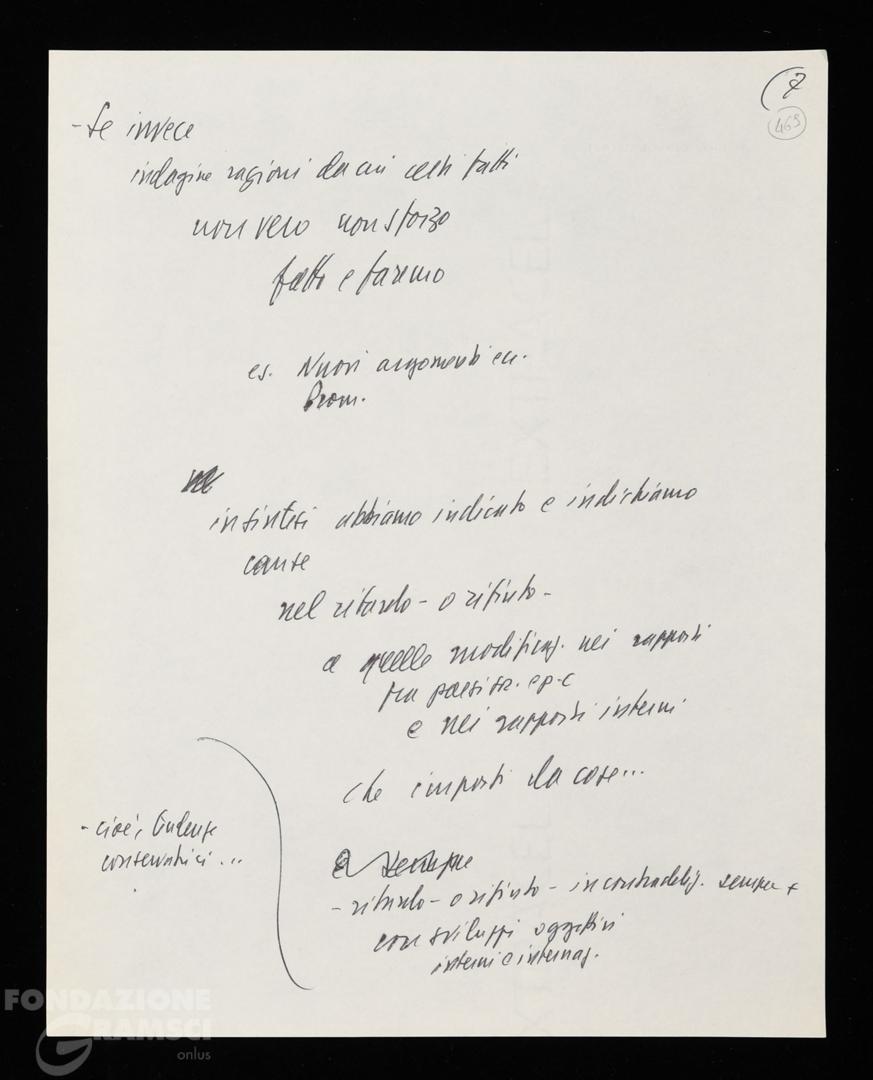 (7
469
- Se invece
indagine ragioni da cui certi fatti
non vero non sforzo
fatto e faremo
es. Nuovi argomenti ecc.
Prom.
in sintesi abbiamo indicato e indichiamo
cause
nel ritardo - o rifiuto -
a quelle modificaz. nei rapporti
tra paesi soc. e p.c
e nei rapporti interni
che imposti da cose...
- cioè, tendenze
conservatrici ...
È sempre
- ritardo - o rifiuto - in contraddiz. sempre +
con sviluppi oggettivi
interni e internaz.
FONDAZIONE
GRAMSCI
onlus